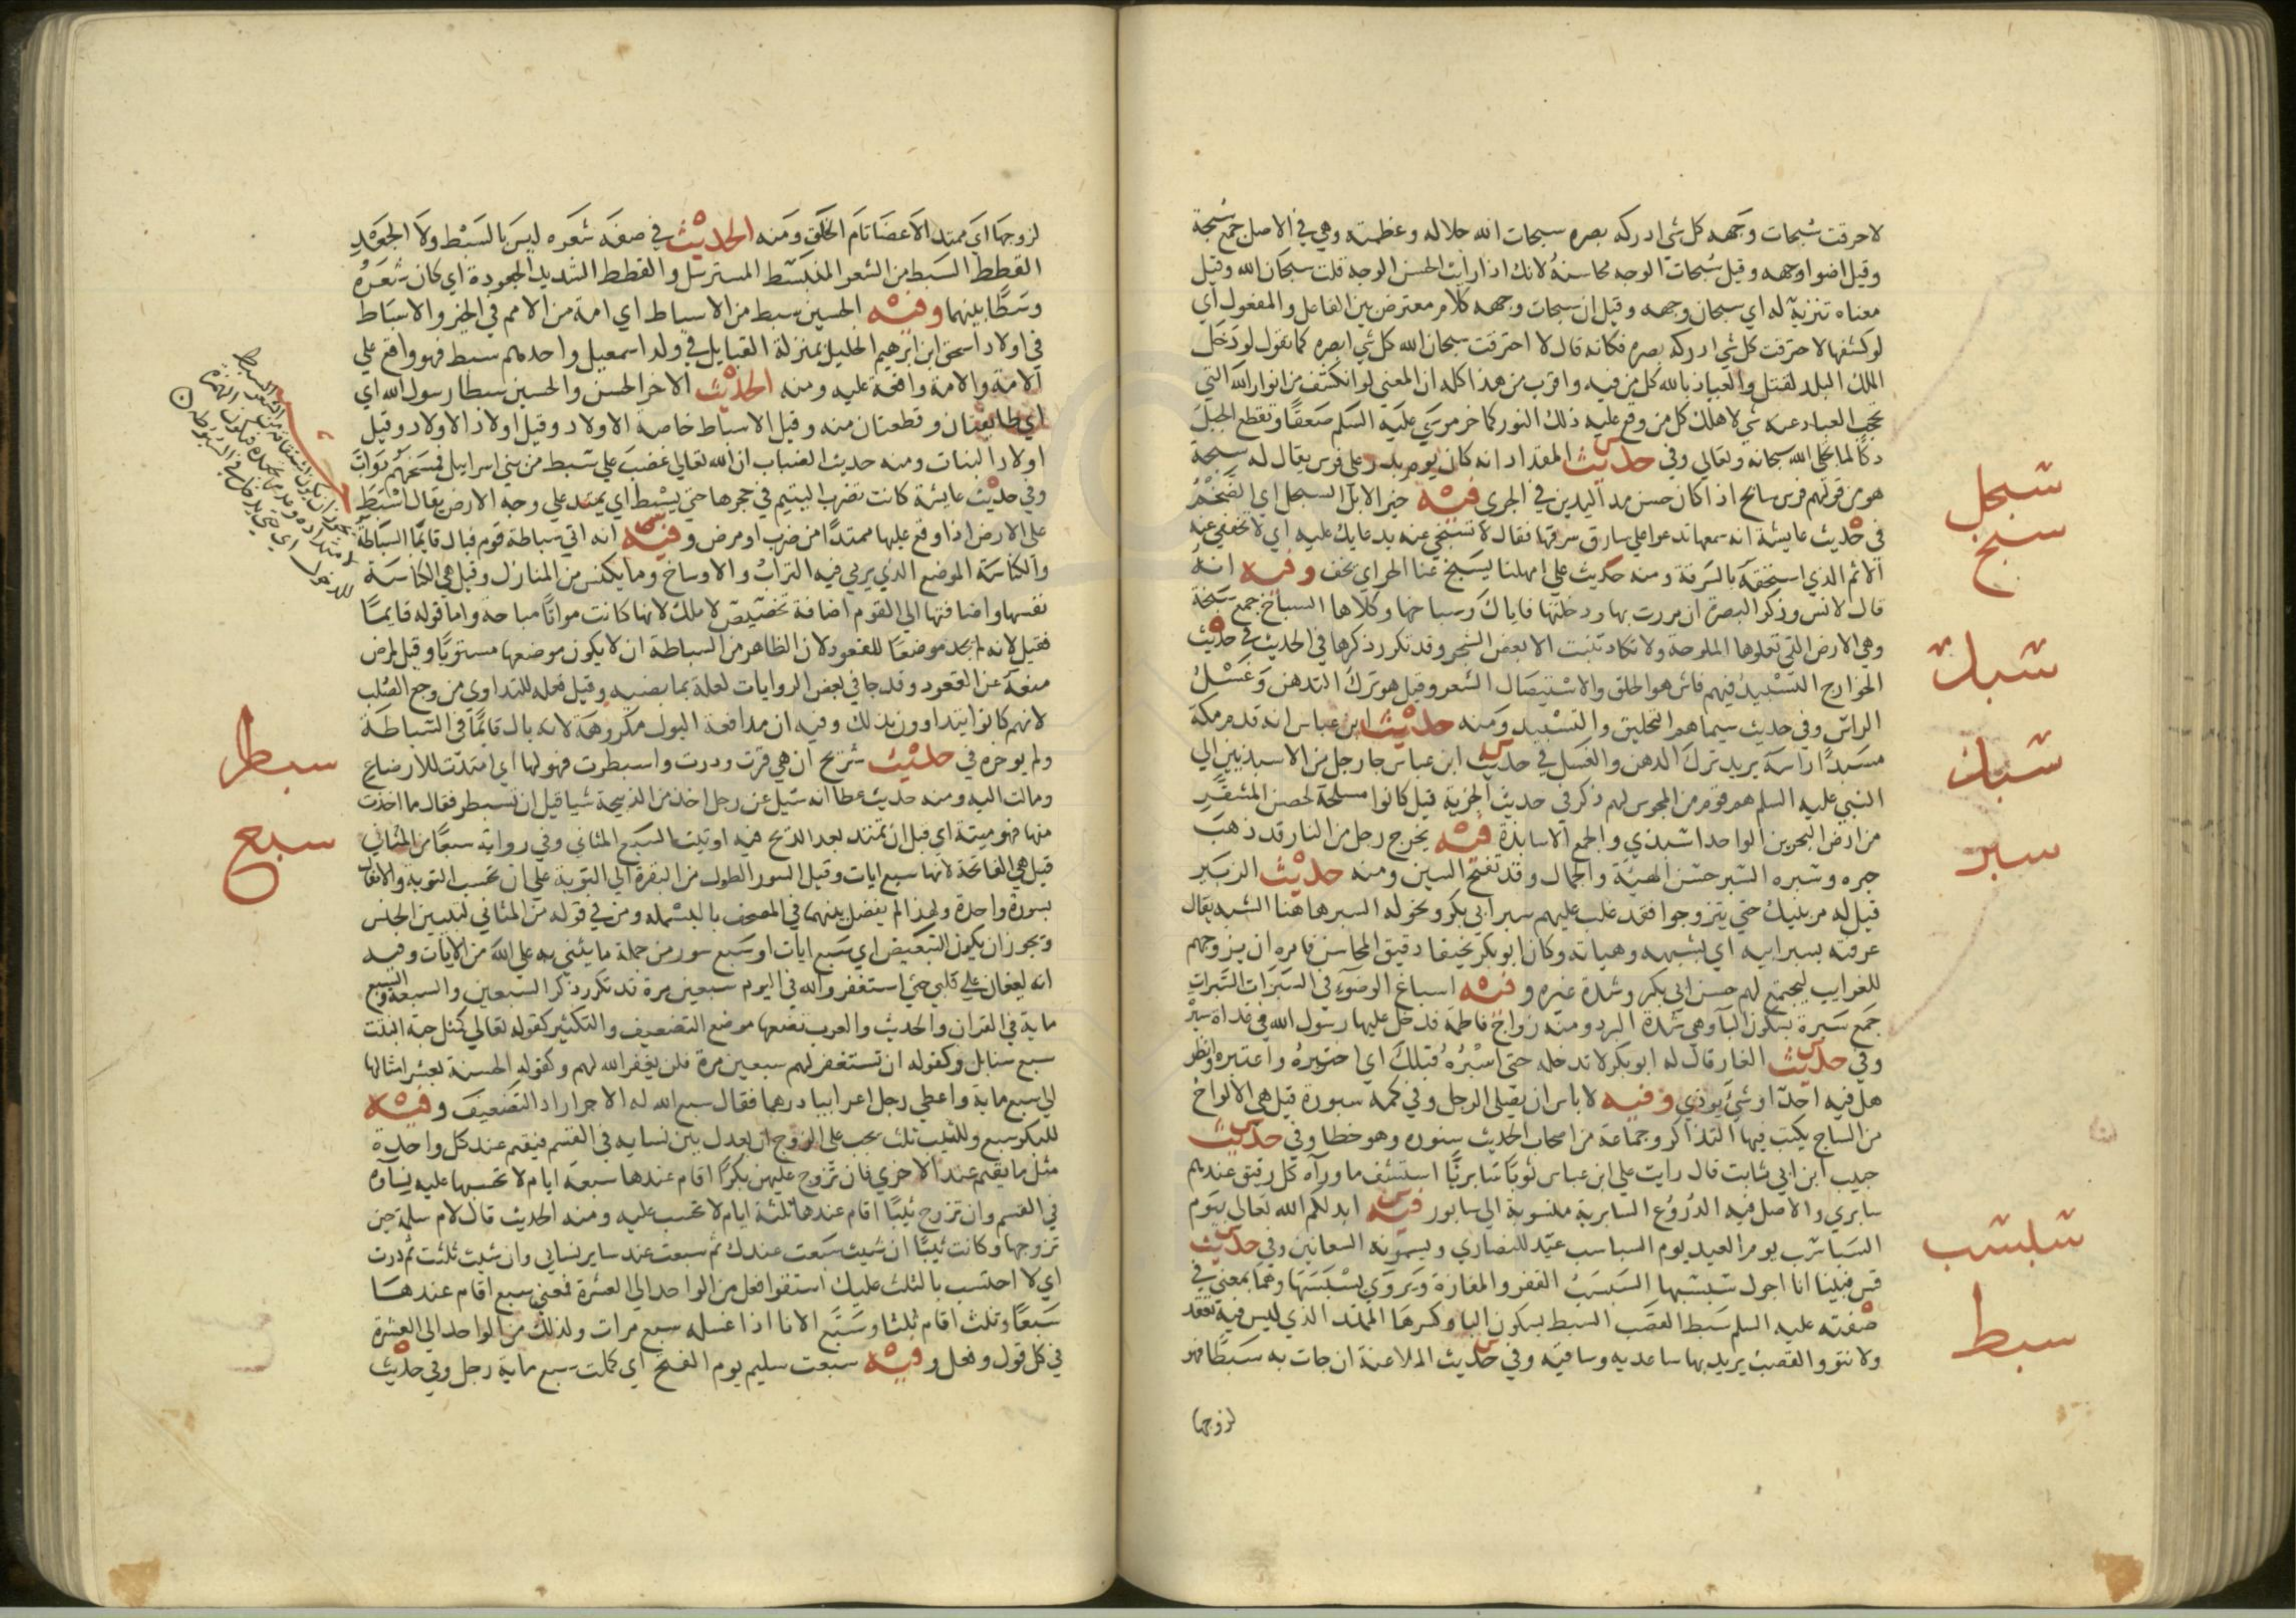 لاحرقت سُبحات وجهه كل شي ادركه بصره سبحات الله جلاله وعظمته وهي في الاصل جمع سُبحة
وقيل اضوا وجهه وقيل سُبحات الوجه محاسنهُ لانك اذا رايت الحسن الوجه قلت سبحان الله وقيل
معناه تنزيه له اي سبحان وجهه وقيل ان سبحات وجهه كلام معترض بين الفاعل والمفعول اي
لو كشفها لاحترقت كل شي ادركه بصره فكانه قال لاحترقت سبحان الله كل شي ابصره كما تقول لو دَخَل
الملك البلد لقتل والعياذ بالله كل من فيه واقرب من هذا كله ان المعنى لو انكشف من انوار الله التي
تحجب العباد عنه شي لاهلك كل من وقع عليه ذلك النور كما خر موسَي عليَه السَلم صَعقًا وتقطع الجبل
دكًا لما تجلى الله سبحانه وتعالي وفي حديث المقداد انه كان يوم بدر على فرس يقال له سبحة
هو من قولهم فرس سابح اذا كان حسن مد اليدين في الجرى فيه خير الابل السبحل اي الضَخْمُ
في حديث عايشة انه سمعها تدعوا علي سارق سرقها فقال لا تسبخي عنه بدعايك عليه اي لا تخففي عنه
الاثم الذي استحقه بالسَرقة ومنه حديث علي امهلنا يُسَبخ عنا الحر اي يخف وفيه انهُ
قال لانس وذكر البصرة ان مررت بها ودخلتها فاياك وسباخها وكلاها السباخ جمع سَبخة
وهي الارض التي تعلوها الملوحة ولا تكاد تنبت الا بعض الشجر وقد تكرر ذكرها في الحديث في حديث
الخوارج التسْبيدُ فيهم فاش هو الحلق والاستيصال الشعر وقيل هو تركُ التدهن وَغَسْلُ
الراس وفي حديث سيماهم التحليق والتسْبيد ومنه حديث ابن عباس انه قدم مكة
مسَبدًا راسَه يريد ترك الدهن والغسل في حديث ابن عباس جا رجل من الاسبذيين الي
النبي عليه السلم هم قوم من المجوس لهم ذكر في حديث الجزية قيل كانوا مسلحة لحصن المشقّر
من ارض البحرين الواحد اسبذي والجمع الاسابذة فيه يخرج رجل من النار قد ذهَب
حبره وسَبره السَبر حسْن الهيئة والجمال وقد تفتح السين ومنه حديث الزبير
قيل له مر بنيك حتي يتزوجوا فقد غلب عليهم سبر ابي بكر ونحوله السبر هاهنا الشبه يقال
عرفته بسبر ابيه اي بشبهه وهياته وكان ابو بكر نحيفا دقيق المحاسن فامره ان يزوجهم
للغرايب ليجتمع لهم حسن ابي بكر وشدة غيره وفيه اسباغ الوضوء في السَبَرَات السَبرات
جمَع سَبرة بسكون البا وهي شدة البرد ومنه زواج فاطمة فدخل عليها رسول الله في غداة سبْرة
وفي حديث الغار قال له ابو بكر لا تدخله حتى اسْبُرُهُ قبلك اي اختبرهُ واعتبره وانظر
هل فيه احدًا او شي يوذي وفيه لا باس ان يصلي الرجل وفي كمه سبورة قيل هي الالواح
من الساج يكتب فيها التذاكر وجماعة من اصحاب الحديث ستوره وهو خطا وفي حديث
حبيب ابن ابي ثابت قال رايت علي ابن عباس ثوبًا سَابريًّا استشف ما ورآه كل رقيق عندهم
سابري والاصل فيه الدُرُوع السابرية منسوبة الي سابور فيه ابدلكم الله تعالي بيَوم
السَبَاسب يوم العيد يوم السباسب عيد للنصاري ويسمونه السعانين وفي حديث
قس فبينا انا اجول سَبسَبها السَبسَبُ القفر والمفازة وَيروَي بَسْبَسَها وهما بمعنى في
صفته عليه السلم سَبط القصَب السبط بسكون البا وكسرهَا الممتد الذي ليس فيه تعقد
ولا نتوء والقصب يريد بها ساعديه وساقيه وفي حديث الملاعنة ان جات به سَبطًا فهو
لزوجها
سبحل
سبخ
سبد
سبذ
سبر
سبسب
سبط
لزوجها اي ممتد الاعضا تام الخلق ومنه الحديث في صفَه شعَره ليسَ بالسَبْط ولا الجعَد
القطط السَبط من الشعر المنبسَط المسترسل والقطط الشديد الجعودة اي كان شعَرهُ
وسَطًا بينهما وفيه الحسين سبط من الاسباط اي امة من الامم في الخير والاسبَاط
في اولاد اسحق ابن ابرهيم الخليل بمنزلة القبايل في ولد اسمعيل واحدهم سبط فهو واقع علي
الامة والامة واقعة عليه ومنه الحديث الاخر الحسن والحسين سبطا رسول الله اي
اي طايفتان وقطعتان منه وقيل الاسباط خاصة الاولاد وقيل اولاد الاولاد وقيل
اولاد البنات ومنه حديث الضباب ان الله تعالي غضب علي سبط من بني اسرايل فمسَخهُم دَوَابّ
وفي حديث عايشة كانت تضرب اليتيم في حجرها حتي يُسْبط اي يمتد علي وجه الارض يقال اسْبَط
على الارض اذا وقع عليها ممتدًا من ضرب او مرض وفيه انه اتي سباطة قوم فبال قايمًا السباطة
والكناسَة الموضع الذي يرمي فيه التراب والاوساخ وما يكنس من المنازل وقيل هي الكناسَة
نفسها واضافتها الي القوم اضافة تخصيص لا ملك لانها كانت مواتًا مباحة واما قوله قايمًا
فقيل لانه لم يجد موضعًا للقعود لان الظاهر من السباطة ان لا يكون موضعها مستويًا وقيل لمرض
منعَه عن القعود وقد جا في بعض الروايات لعلة بمابضيه وقيل فعله للتداوي من وجع الصُلب
لانهم كانوا يتداوون بذلك وفيه ان مدافعة البول مكروهَة لانه بال قايمًا في السَباطَة
ولم يوخره في حديث شريح ان هي قرت ودرت واسبطرت فهو لها اي امتدت للارضاع
ومالت اليه ومنه حديث عطا انه سئِل عن رجل اخذ من الذبيحة شيا قبل ان تسبطر فقال ما اخذت
منها فهو ميتة اي قبل ان تمتد بعد الذبح فيه اوتيت السَبع المثاني وفي رواية سبعًا من المثاني
قيل هي الفاتحة لانها سبع ايات وقيل السور الطول من البقرة الي التوبة على ان تحسب التوبة والانفال
بسورة واحدة ولهذا لم يفصل بينهما في المصحف بالبسمله ومن في قوله من المثاني لتبيين الجنس
ويجوز ان يكون للتبعيض اي سَبع ايات او سَبع سور من جملة ما يثني به علي الله من الايات وفيه
انه ليغان على قلبي حتي استغفر الله في اليوم سبعين مرة قد تكرر ذكر السبعين والسبعة والسبع
ماية في القران والحديث والعرب تضعها موضع التضعيف والتكثير كقوله تعالي كمثل حبة انبتت
سبع سنابل وكقوله ان تستغفر لهم سبعين مرة فلن يغفر الله لهم وكقوله الحسنة بعشر امثالها
الي سبع ماية واعطي رجل اعرابيا درهما فقال سبع الله له الاجر اراد التضَعيف وفيه
للبكر سبع وللثيب ثلث يجب على الزوج ان يعدل بين نسايه في القسم فيقيم عند كل واحدة
مثل ما يقيم عند الاخري فان تزوج عليهن بكرًا اقام عندها سبعة ايام لا تحسبها عليه نسآوه
في القسم وان تزوج ثيبًا اقام عندها ثلثة ايام لا تحسب عليه ومنه الحديث قال لام سلمة حين
تزوجها وكانت ثيبًا ان شيت سَبعت عندك ثم سبعت عند ساير نساي وان شيت ثلثت ثم درت
اي لا احتسب بالثلث عليك اشتقوا فعل من الواحد الي العشرة فمعني سبع اقام عندهَا
سَبعًا وثلث اقام ثلثا وسَبَّع الانا اذا غسله سبع مرات ولذلك من الواحد الي العشرة
في كل قول وفعل وفيه سبعت سليم يوم الفتح اي كملت سبع ماية رجل وفي حديث
سبطر
سبع